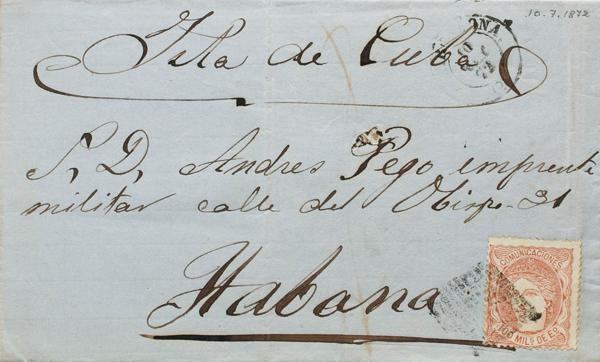 10.7.1872
Isla de Cuba
S. D. Andres Pego imprenta
militar calle del Obispo-31
Habana
COMUNICACIONES
100 MILS DE EO.